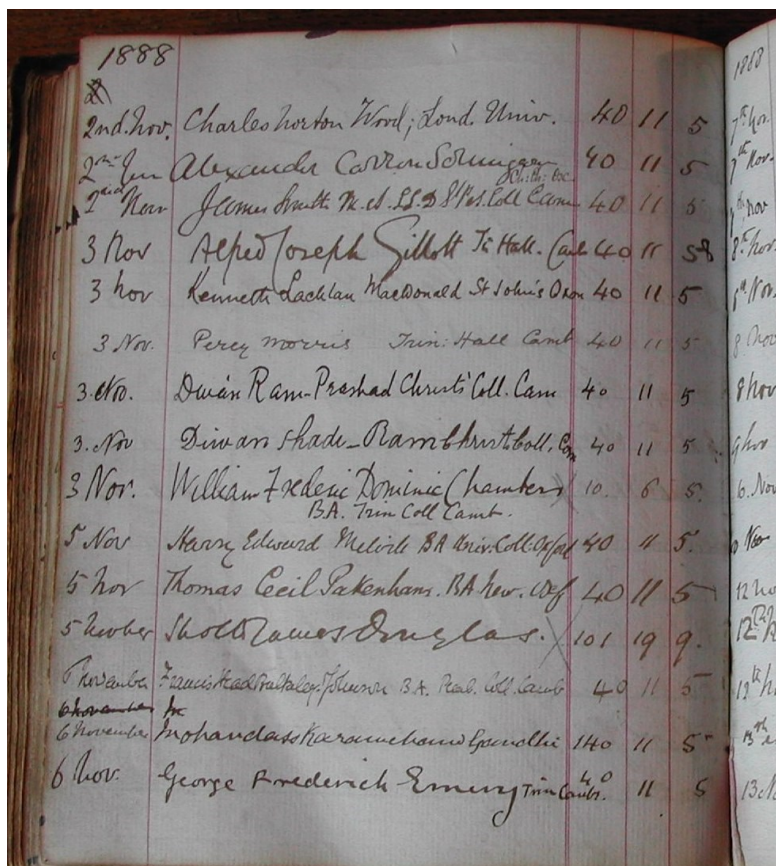 1888
2nd. Nov. Charles Norton Wood; Lond. Univ. 40 11 5
Alexander 40 11 5
2nd Nov James Smith M.A. LL.D St Pet. Coll Cam 40 11 5
3 Nov Alfred Joseph Gillott Tri Hall. Camb 40 11 5
3 Nov Kenneth Lachlan MacDonald St John's Oxon 40 11 5
3 Nov. Percy Morris Trin: Hall Camb 40 11 5
3. Nov. Diwán Ram-Prashad Christ's Coll. Cam 40 11 5
3. Nov Diwan Shadi-Ram Christ's Coll. Cam 40 11 5
3 Nov. William Frederic Dominic Chambers 10. 6 5.
B.A. Trin Coll Camb.
5 Nov Harry Edward Melvill BA Univ. Coll: Oxford 40 11 5.
5 Nov Thomas Cecil Pakenham. BA New. Oxf 40 11 5
5 Novber Sholto James Douglas. 101 19 9.
6 November Francis Head Johnson B.A. Pemb. Coll. Camb 40 11 5
6 November
6 November Mohandass Karamchand Gandhi 140 11 5
6 Nov. George Frederich Emery Trin Cambs. 40 11 5
1888
7th Nov.
7th Nov.
Nov
8th Nov.
Nov.
8 Nov
8 Nov
9 Nov
Nov
Nov
12 No
12th
13th N
13th
13 N